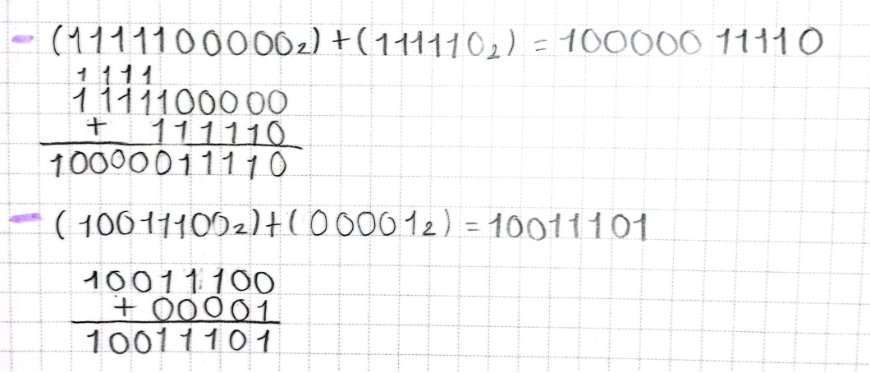 - (1111100000₂) + (111110₂) = 10000011110
1111
1111100000
+ 111110
10000011110
- (10011100₂) + (00001₂) = 10011101
10011100
+ 00001
10011101